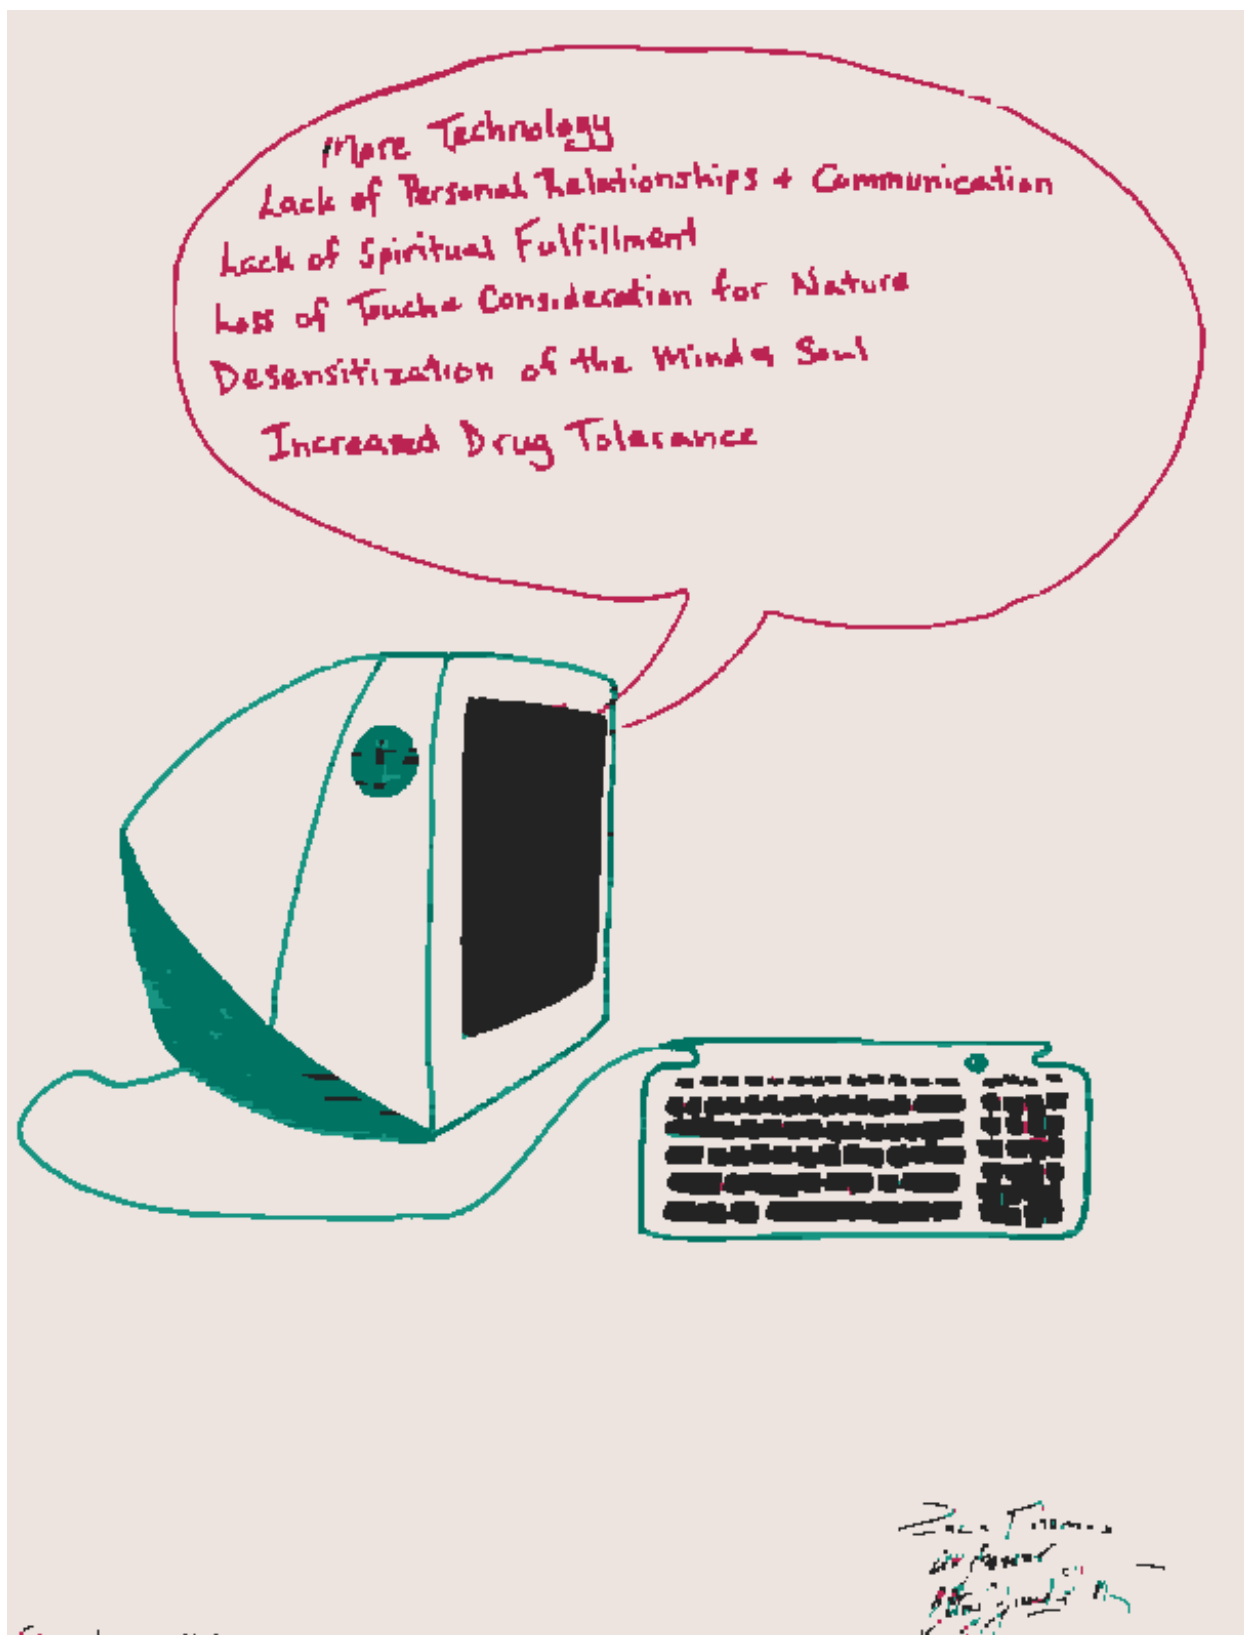 More Technology
Lack of Personal Relationships + Communication
Lack of Spiritual Fulfillment
Loss of Touch & Consideration for Nature
Desensitization of the Mind & Soul
Increased Drug Tolerance